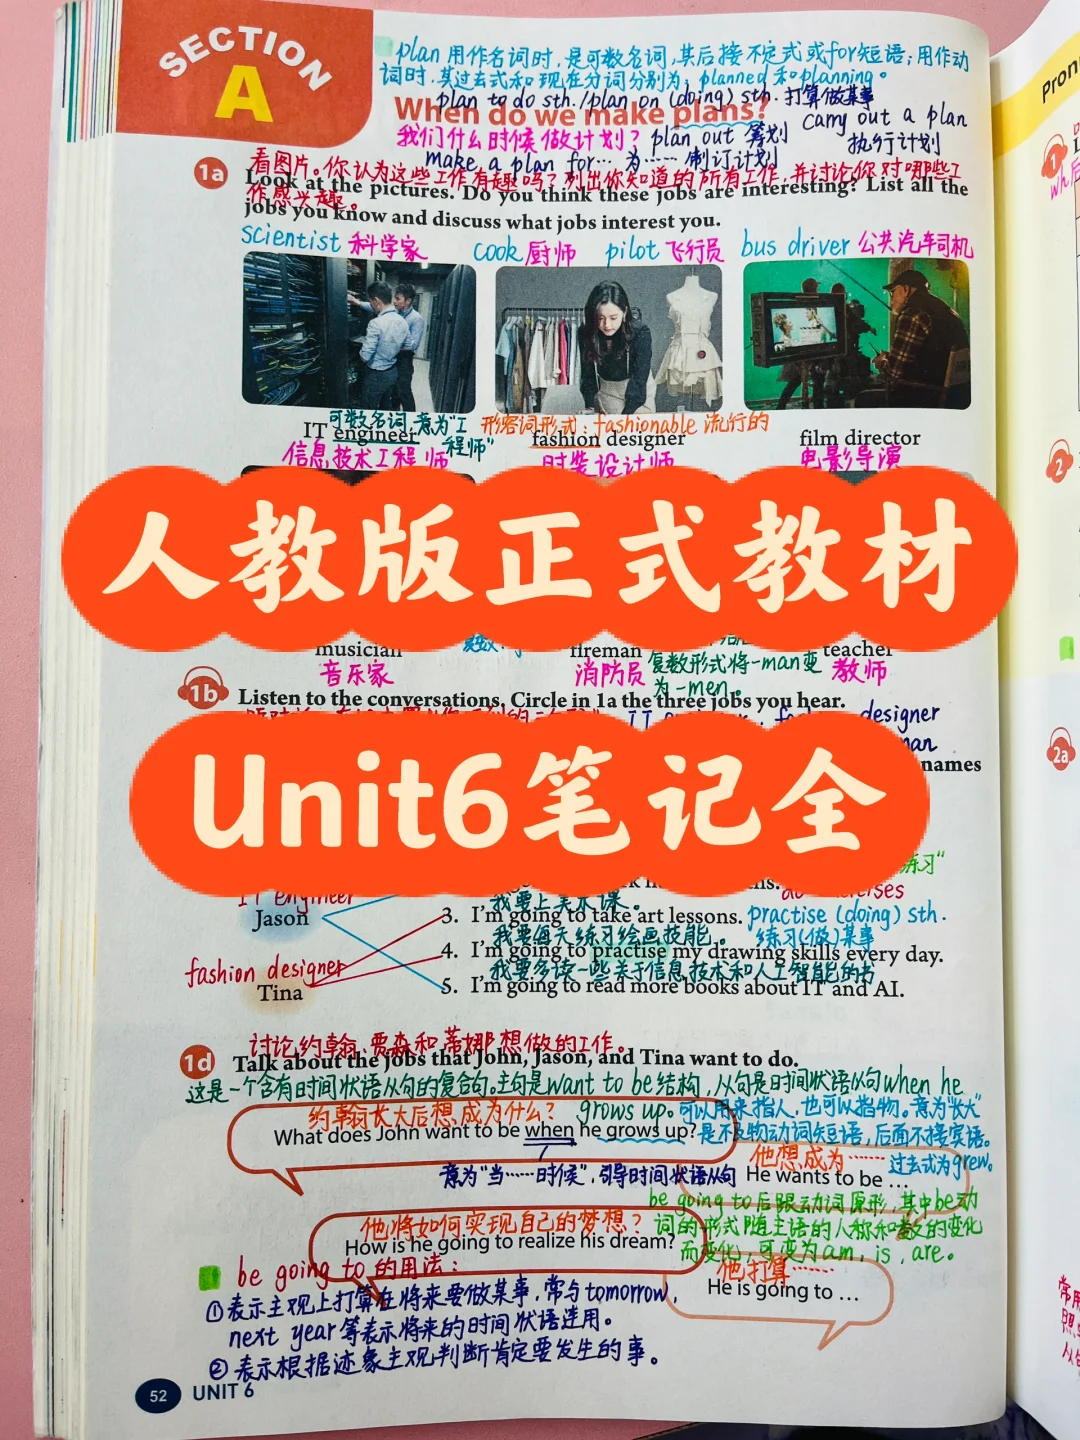 SECTION
A
plan 用作名词时,是可数名词,其后接不定式或for短语;用作动
词时,其过去式和现在分词分别为: planned 和planning。
plan to do sth./plan on (doing) sth. 打算做某事
When do we make plans?
carry out a plan
我们什么时候做计划? plan out 筹划 执行计划
make a plan for… 为…… 制订计划
看图片。你认为这些工作有趣吗?列出你知道的所有工作,并讨论你对哪些工
作感兴趣。
1a Look at the pictures. Do you think these jobs are interesting? List all the
jobs you know and discuss what jobs interest you.
scientist 科学家 cook 厨师 pilot 飞行员 bus driver 公共汽车司机
可数名词,意为"工程师" 形容词形式: fashionable 流行的
IT engineer fashion designer film director
信息技术工程师 时装设计师 电影导演
人教版正式教材
musician fireman teacher
音乐家 消防员 复数形式将-man变为-men。 教师
1b Listen to the conversations. Circle in 1a the three jobs you hear.
designer
names
Unit6笔记全
练习"
IT engineer
我要上美术课。
Jason 3. I'm going to take art lessons. practise (doing) sth.
我要每天练习绘画技能。 练习(做)某事
4. I'm going to practise my drawing skills every day.
fashion designer 我要多读一些关于信息技术和人工智能的书
Tina 5. I'm going to read more books about IT and AI.
讨论约翰、贾森和蒂娜想做的工作。
1d Talk about the jobs that John, Jason, and Tina want to do.
这是一个含有时间状语从句的复合句。主句是want to be结构,从句是时间状语从句when he
grows up。可以用来指人,也可以指物。意为"长大"
约翰长大后想成为什么?
What does John want to be when he grows up? 是不及物动词短语,后面不接宾语。
他想成为…… 过去式为grew。
意为"当……时候",引导时间状语从句 He wants to be …
be going to后跟动词原形,其中be动
他将如何实现自己的梦想? 词的形式随主语的人称和数的变化
How is he going to realize his dream? 而变化,可变为am, is, are。
be going to 的用法: 他打算……
He is going to …
①表示主观上打算在将来要做某事,常与tomorrow,
next year等表示将来的时间状语连用。
②表示根据迹象主观判断肯定要发生的事。
52 UNIT 6
1
2
2a